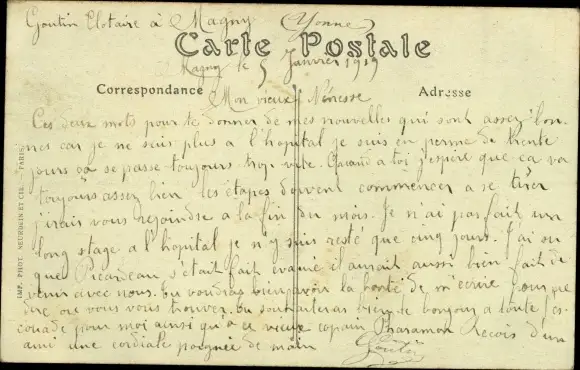 Goutin Clotaire à Magny (Yonne)
Carte Postale
Magny le 5 Janvier 1919
Correspondance
Adresse
Mon vieux Nénesse
Ces deux mots pour te donner de mes nouvelles qui sont assez bon-
nes car je ne suis plus a l'hopital je suis en perme de trente
jours ça se passe toujours trop vite. Quand a toi j'espère que ca va
toujours assez bien les étapes doivent commencer a se tirer
j'irais vous rejoindre a la fin du mois. Je n'ai pas fait un
long stage a l'hopital je n'y suis resté que cinq jours. J'ai su
que Picardeau s'était fait évacué il aurait aussi bien fait de
venir avec nous. Tu voudras bien avoir la bonté de m'écrire pour me
dire ou vous vous trouver. Tu souhaiteras bien le bonjour a toute l'es-
couade pour moi ainsi qu'a ce vieux copain Pharamon recois d'un
ami une cordiale poignée de main
Goutin
IMP. PHOT. NEURDEIN ET CIE. PARIS.